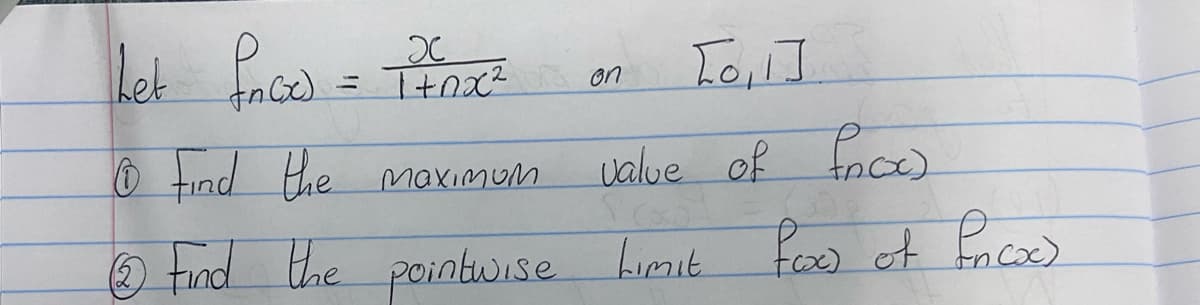 Let fn(x) = x/(1+nx²) on [0,1].
① Find the maximum value of fn(x)
② Find the pointwise Limit f(x) of fn(x)